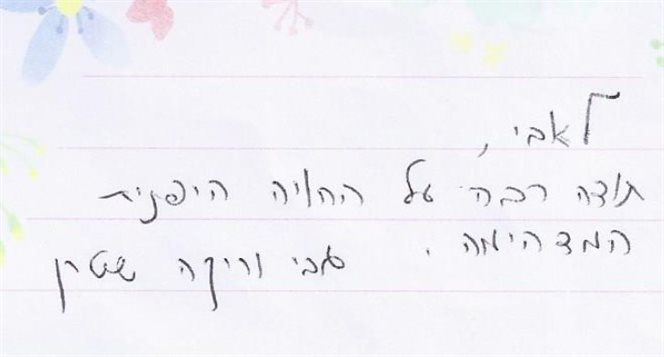 לאבי,
תודה רבה על החויה היפנית
המדהימה. צבי וריקה שטרן